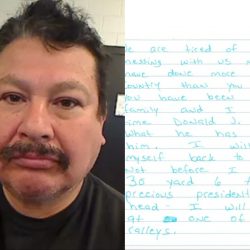 e are tired of
messing with us m
have done more
country than you
you have been
family and I
time Donald J.
what he has
him. I will
myself back to
Not before I
30 yard 6 t
precious president
head - I will
at one of
ralleys.